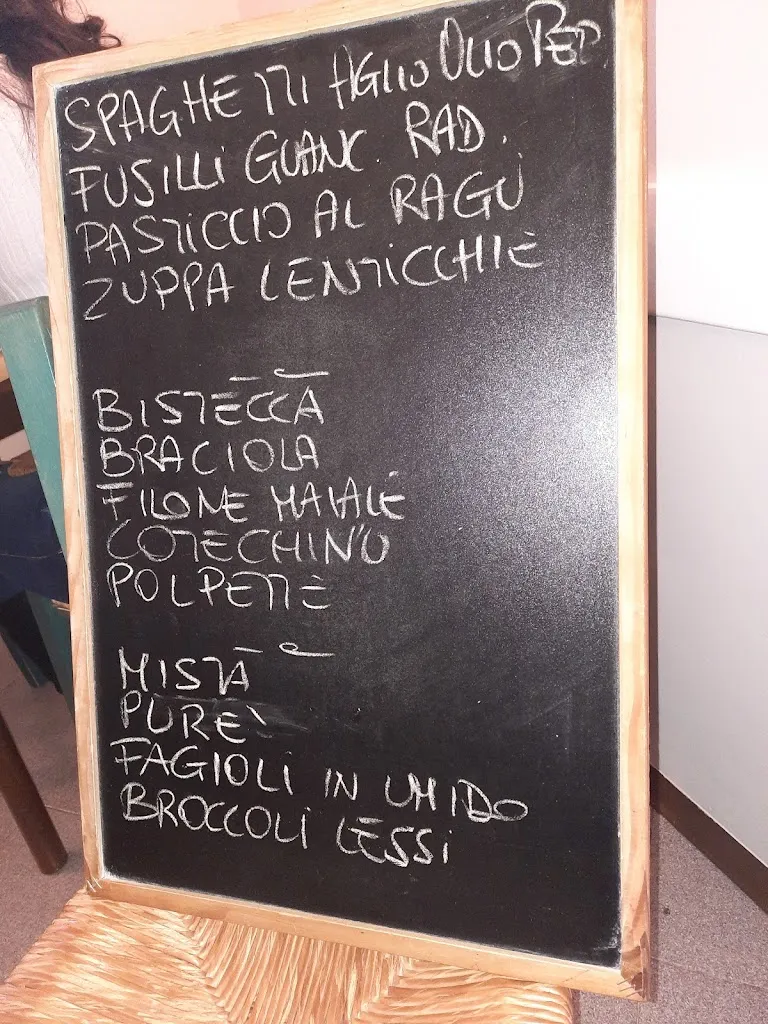 SPAGHETTI AGLIO OLIO PEP.
FUSILLI GUANC. RAD.
PASTICCIO AL RAGÙ
ZUPPA LENTICCHIE
BISTECCA
BRACIOLA
FILONE MAIALE
COTECHINO
POLPETTE
MISTA
PURE'
FAGIOLI IN UMIDO
BROCCOLI LESSI